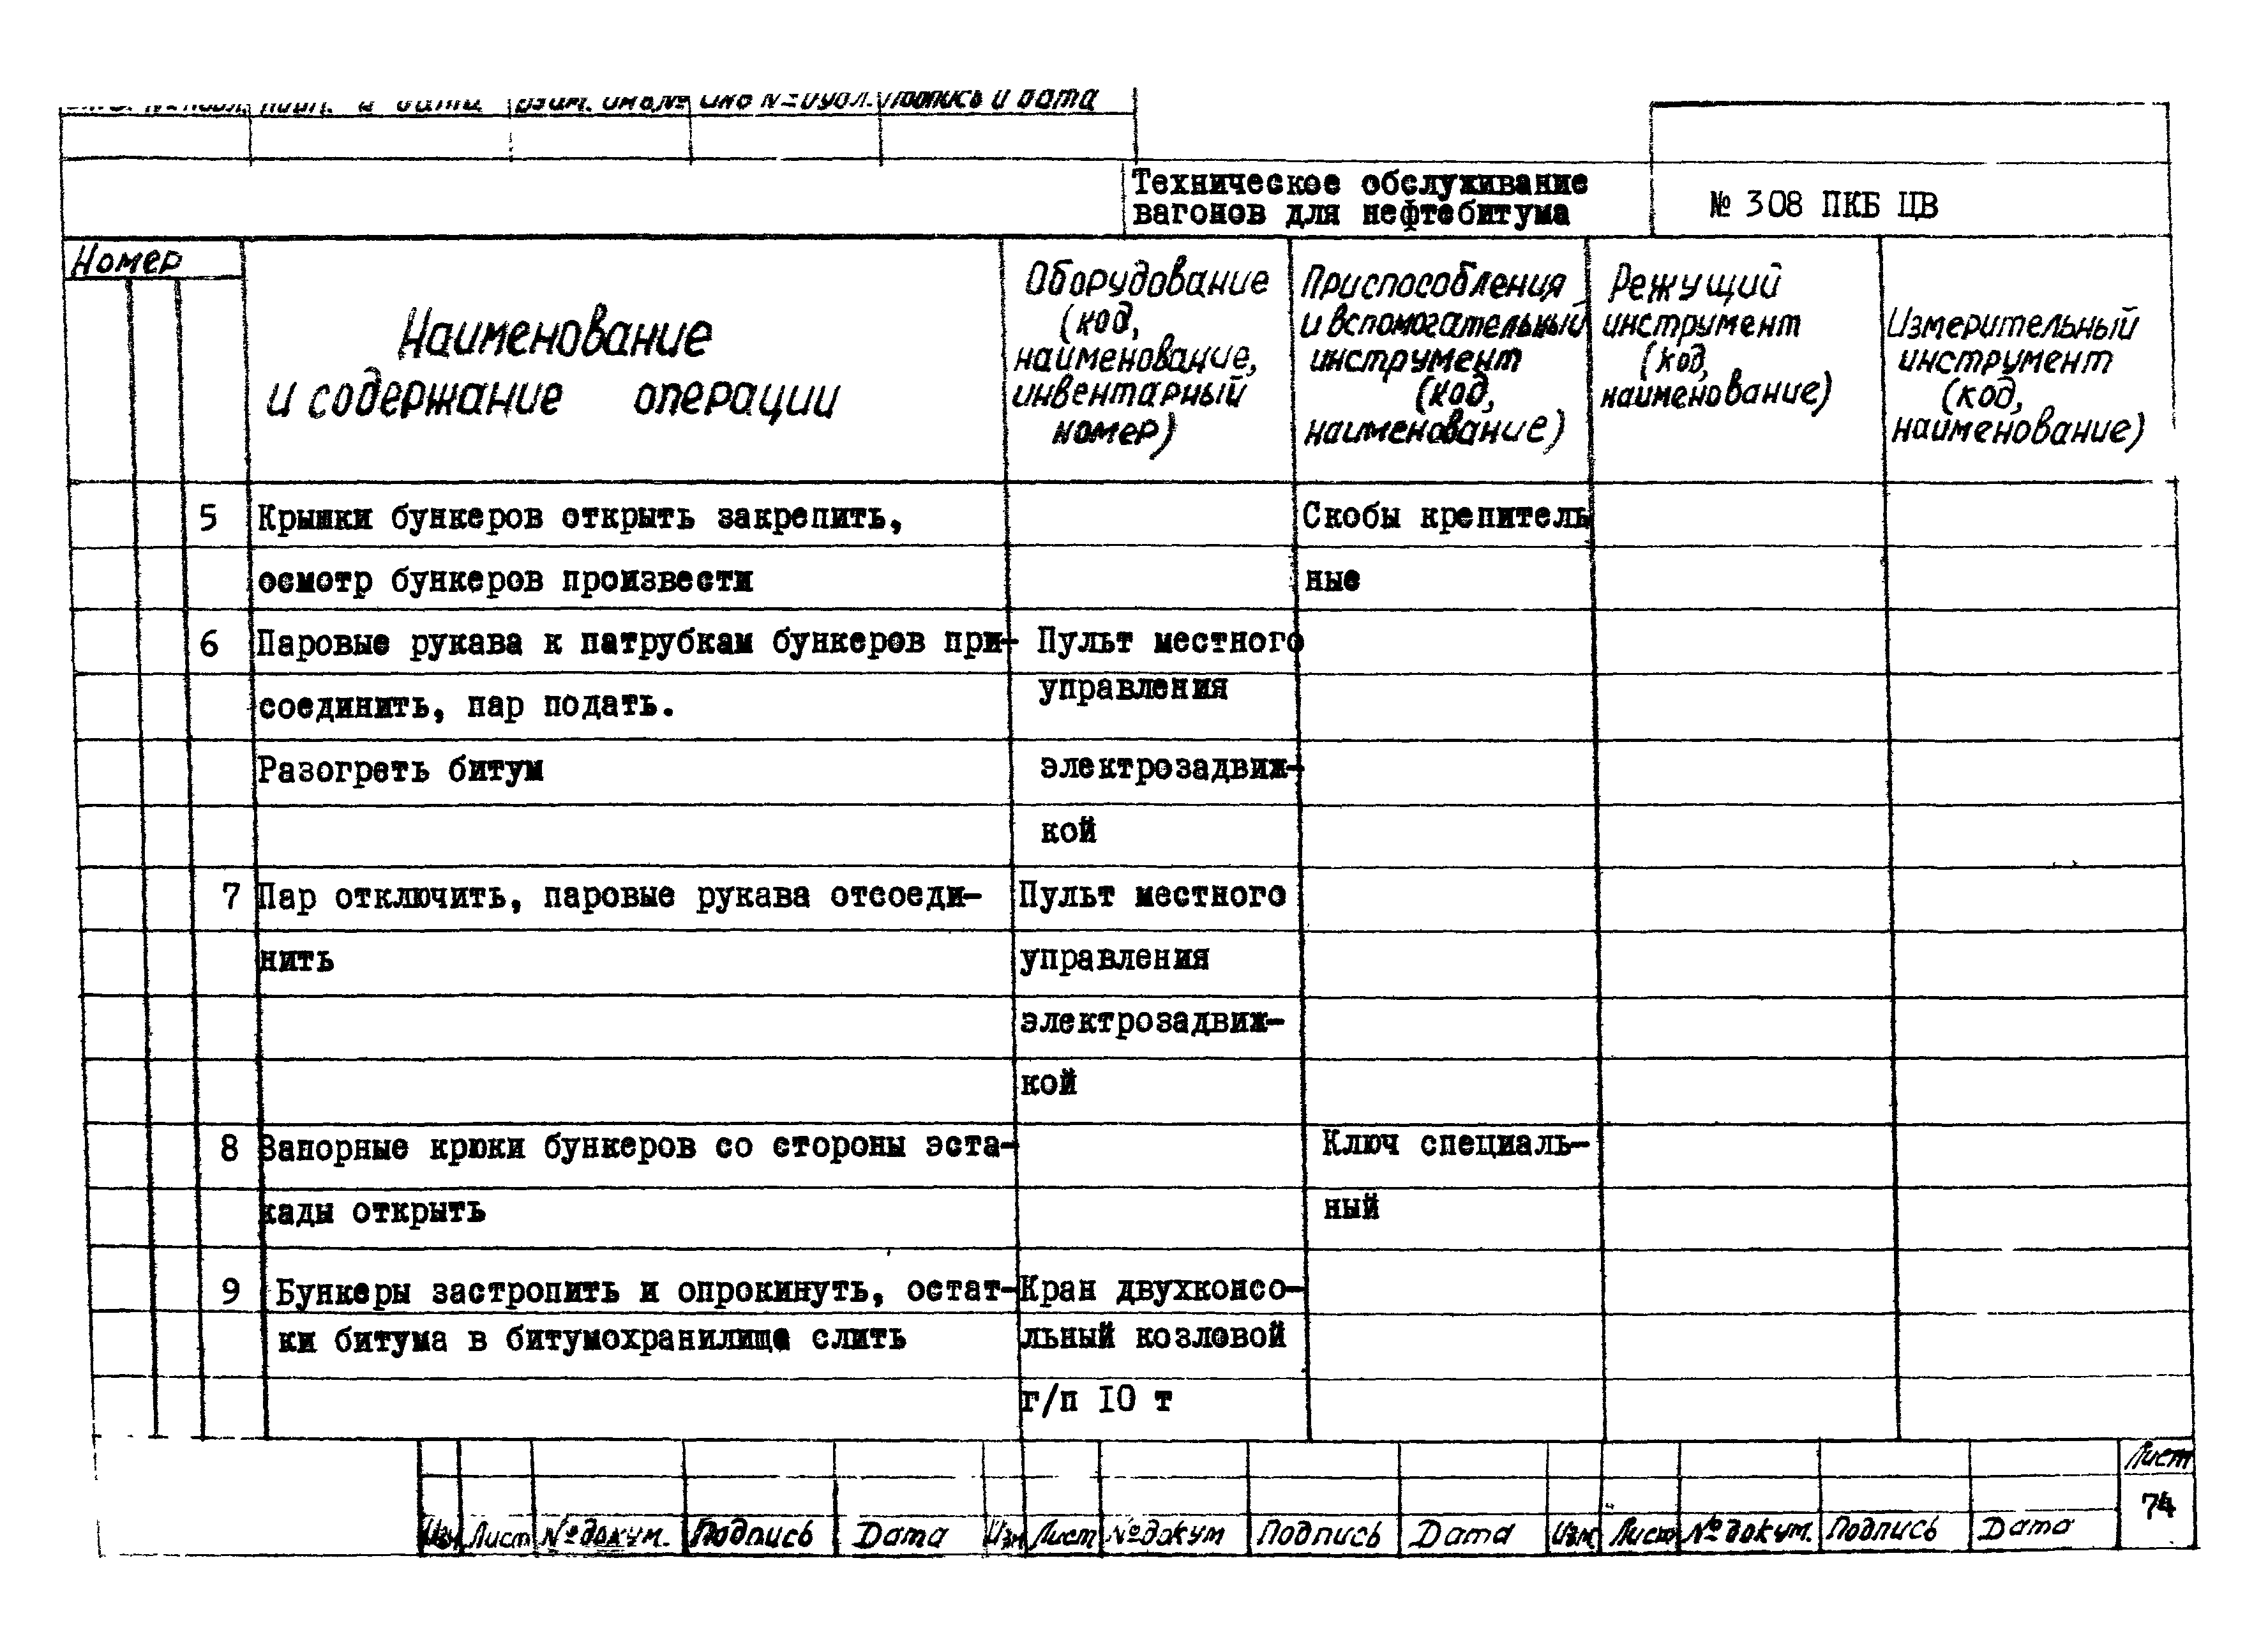 подп. и дата взам. инв.№ инв №дубл. подпись и дата
Техническое обслуживание
вагонов для нефтебитума
№ 308 ПКБ ЦВ
Номер
Наименование
и содержание операции
Оборудование
(код,
наименование,
инвентарный
номер)
Приспособления
и вспомогательный
инструмент
(код,
наименование)
Режущий
инструмент
(код,
наименование)
Измерительный
инструмент
(код,
наименование)
5 Крышки бункеров открыть закрепить, Скобы крепитель
осмотр бункеров произвести ные
6 Паровые рукава к патрубкам бункеров при- Пульт местного
соединить, пар подать. управления
Разогреть битум электрозадвиж-
кой
7 Пар отключить, паровые рукава отсоеди- Пульт местного
нить управления
электрозадвиж-
кой
8 Запорные крюки бункеров со стороны эста- Ключ специаль-
кады открыть ный
9 Бункеры застропить и опрокинуть, остат- Кран двухконсо-
ки битума в битумохранилище слить льный козловой
г/п 10 т
Лист
74
Изм Лист №докум. Подпись Дата Изм Лист №докум Подпись Дата Изм Лист №докум. Подпись Дата